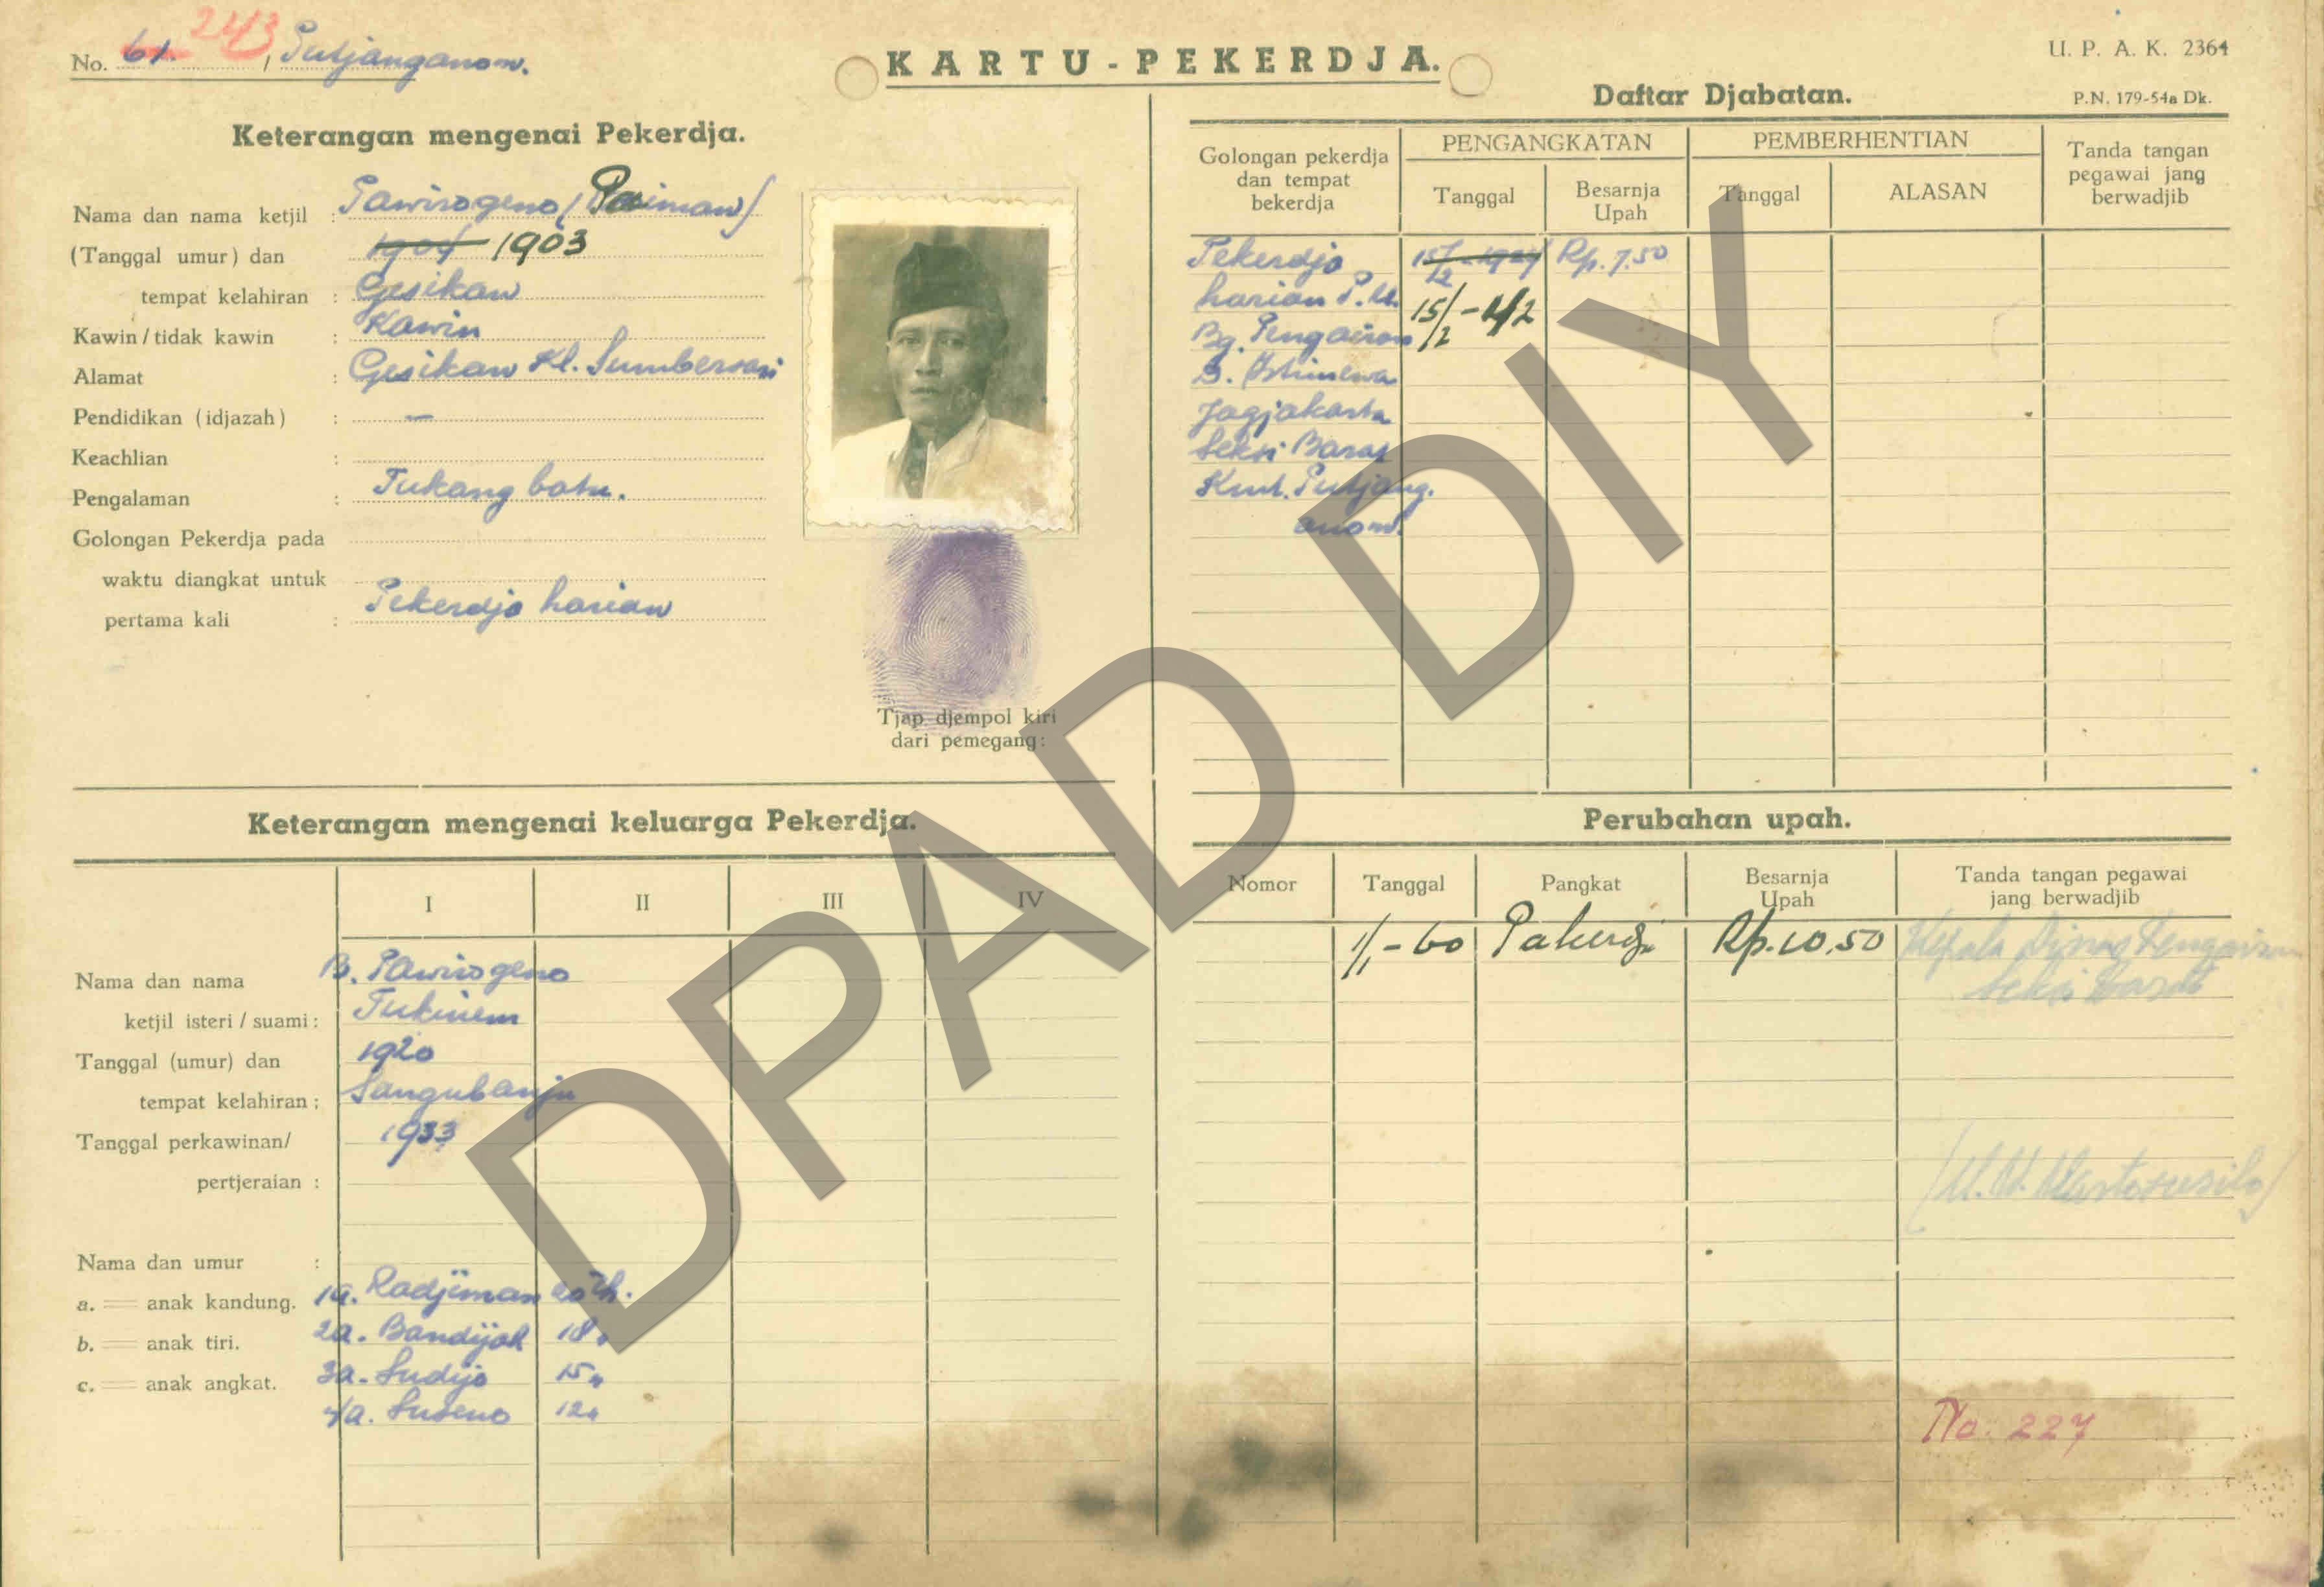 No. 61. 243, Putjanganom.
KARTU-PEKERDJA.
U. P. A. K. 2364
P.N. 179-54a Dk.
Keterangan mengenai Pekerdja.
Nama dan nama ketjil : Pawirogeno (Paiman)
(Tanggal umur) dan 1904 1903
tempat kelahiran : Gesikan
Kawin / tidak kawin : Kawin
Alamat : Gesikan Kl. Sumbersari
Pendidikan (idjazah) : —
Keachlian :
Pengalaman : Tukang batu.
Golongan Pekerdja pada
waktu diangkat untuk
pertama kali : Pekerdja harian
Tjap djempol kiri
dari pemegang:
Daftar Djabatan.
Golongan pekerdja
dan tempat
bekerdja
PENGANGKATAN
Tanggal
Besarnja
Upah
PEMBERHENTIAN
Tanggal
ALASAN
Tanda tangan
pegawai jang
berwadjib
Pekerdja Rp. 7.50
harian P.U. 15/2 - 42
Bg. Pengairan
D. Istimewa
Jogjakarta
Seksi Barat
Kmt. Putjang.
anom.
Keterangan mengenai keluarga Pekerdja.
I II III IV
Nama dan nama B. Pawirogeno
ketjil isteri / suami : Tukinem
Tanggal (umur) dan 1920
tempat kelahiran ; Sangubanju
Tanggal perkawinan/ 1933
pertjeraian :
Nama dan umur :
a. = anak kandung. 1a. Radjiman 20 th.
b. = anak tiri. 2a. Bandijah 18 "
c. = anak angkat. 3a. Sudijo 15 "
4a. Suseno 12 "
Perubahan upah.
Nomor
Tanggal
Pangkat
Besarnja
Upah
Tanda tangan pegawai
jang berwadjib
1/1 - 60 Pekerdja Rp. 10,50 Kepala Dinas Pengairan
Seksi Barat
No. 227
DPAD DIY